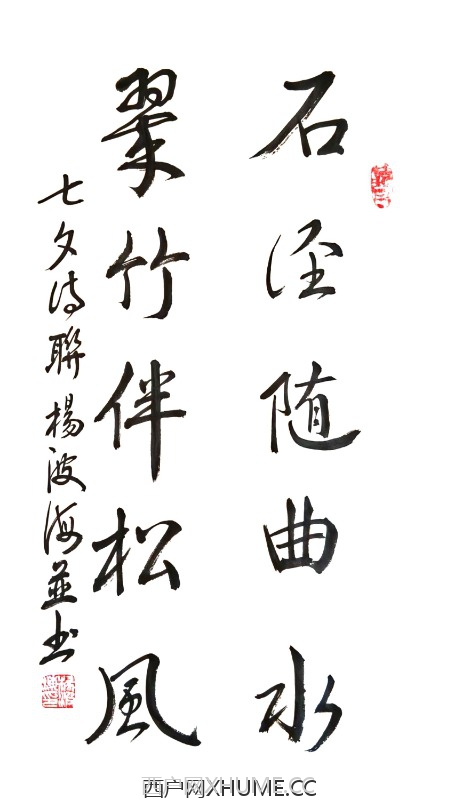 石径随曲水
翠竹伴松风
七夕诗聯楊波海並书
西户网XHUME.CC